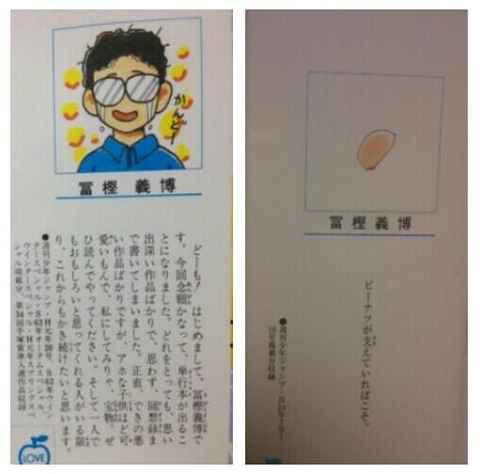 かんどー
冨樫義博
どーも! はじめまして、冨樫義博で
す。今回念願かなって、単行本が出るこ
とになりました。どれをとっても、思い
出深い作品ばかりで、思わず、回想録ま
で書いてしまいました。正直、できの悪
い作品ばかりですが、アホな子供ほど可
愛いもんで、私にしてみりゃ、宝物。ぜ
ひ読んでやってください。そして一人で
もおもしろいと思ってくれる人がいる限
り、これからもかき続けたいと思います。
●週刊少年ジャンプ・H元年20号、S62年ウイン
タースペシャル・S63年オータムスペシャル・
ウインタースペシャル・H元年スプリングスペ
シャル掲載分、第34回手塚賞準入選作品収録
LOVE
冨樫義博
ピーナツが支えていればこそ。
●週刊少年ジャンプ・
号掲載分収録